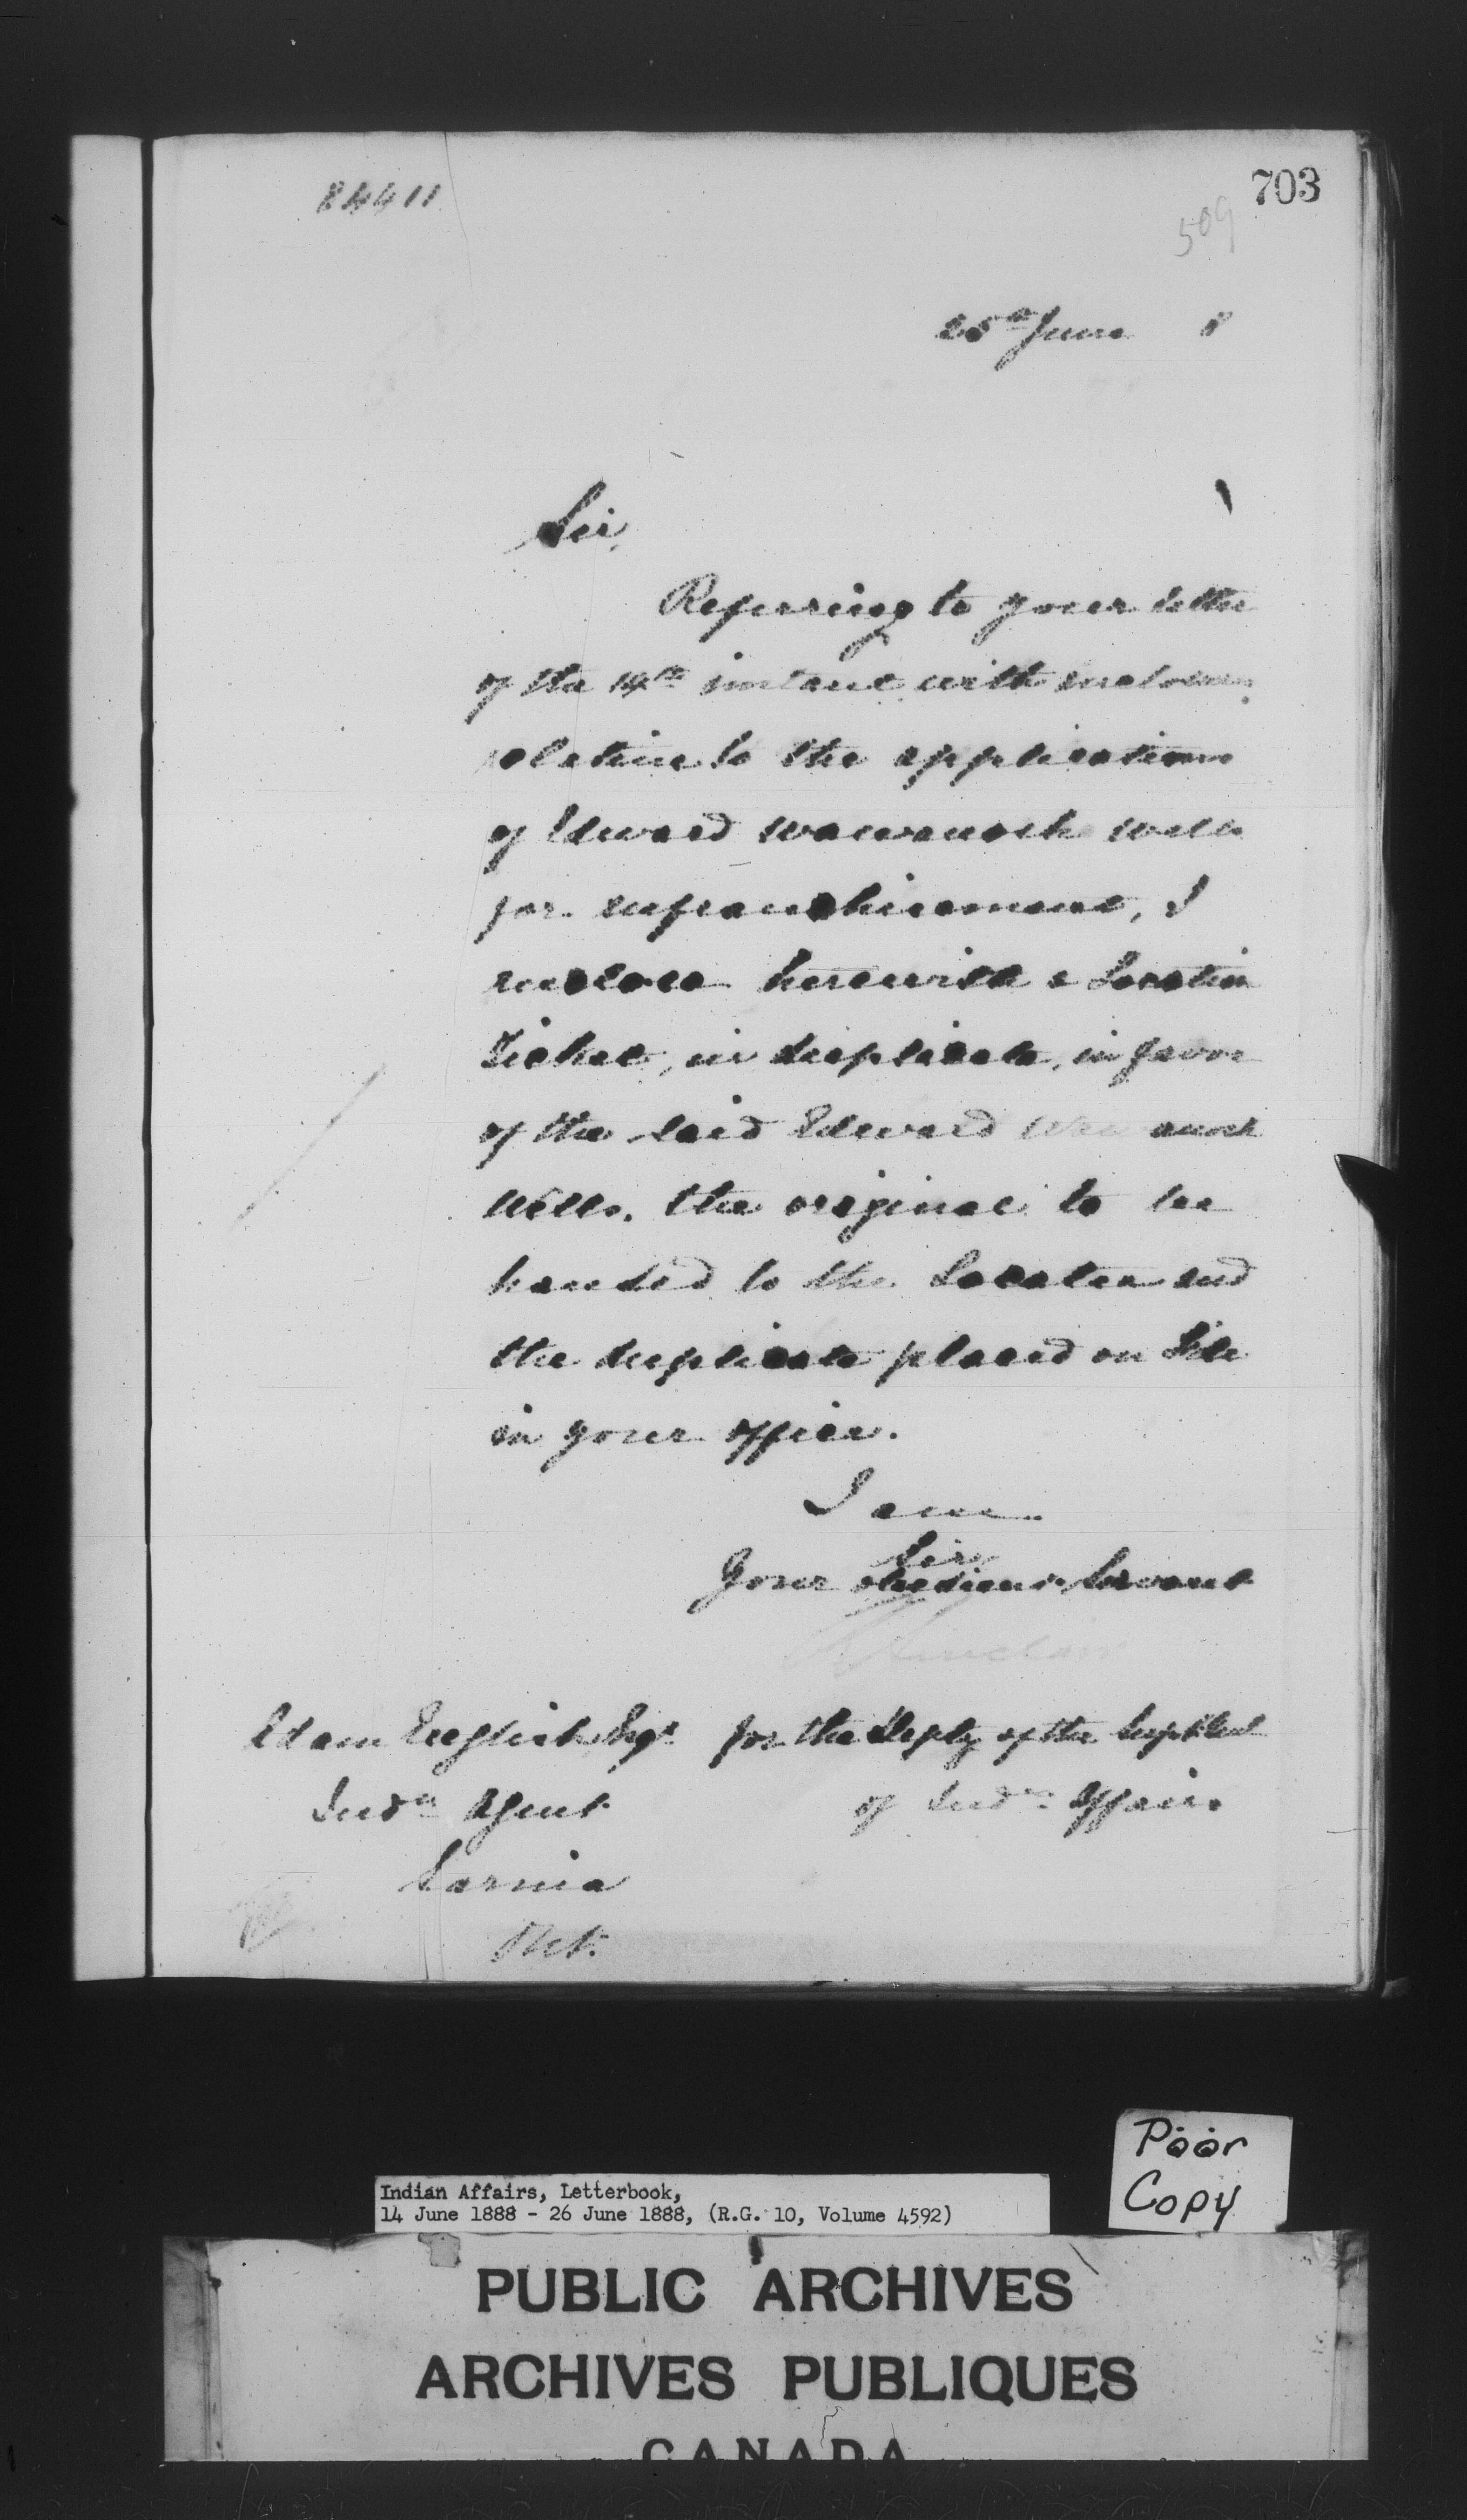 84411
703
509
25th June 8
Sir,
Referring to your letter
of the 14th instant with enclosures
relative to the application
of Edward Wawanosh Wells
for enfranchisement, I
enclose herewith a Location
Ticket, in duplicate, in favor
of the said Edward Wawanosh
Wells. the original to be
handed to the Locatee and
the duplicate placed on file
in your office.
I am
Sir
Your obedient Servant
R Sinclair
Adam English Esqr. for the Depty of the Suptdent
Indn Agent of Indn Affairs
Sarnia
Ont.
Poor
Copy
Indian Affairs, Letterbook,
14 June 1888 - 26 June 1888, (R.G. 10, Volume 4592)
PUBLIC ARCHIVES
ARCHIVES PUBLIQUES
CANADA